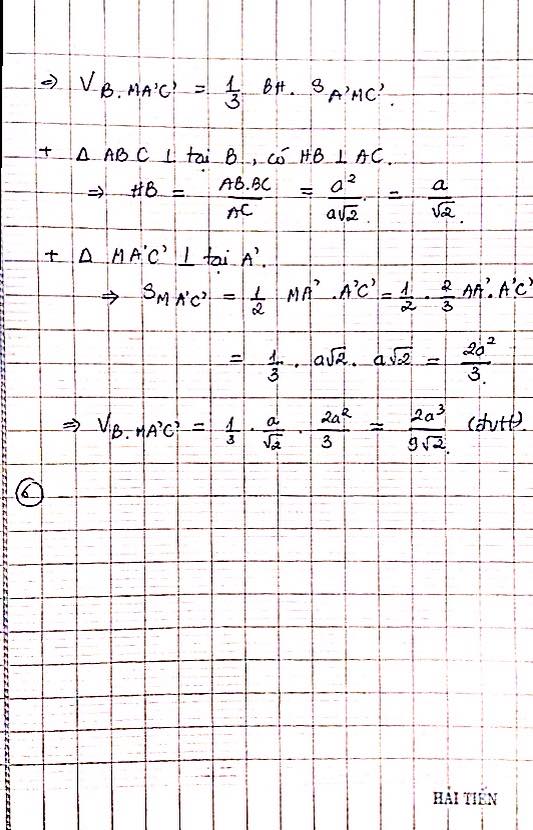 ⇒ V B.MA'C' = 1/3 BH. S A'MC'.
+ Δ ABC ⊥ tại B, có HB ⊥ AC.
⇒ HB = AB.BC/AC = a²/a√2 = a/√2.
+ Δ MA'C' ⊥ tại A'.
⇒ S MA'C' = 1/2 MA'.A'C' = 1/2 . 2/3 AA'.A'C'
= 1/3 . a√2 . a√2 = 2a²/3.
⇒ V B.MA'C' = 1/3 . a/√2 . 2a²/3 = 2a³/9√2. (đvtt).
6
HẢI TIẾN